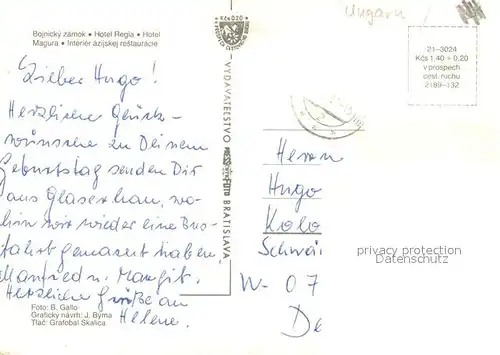 Ungarn
Bojnický zámok • Hotel Regia • Hotel
Magura • Interiér ázijskej reštaurácie
Kčs 0.20
21–3024
Kčs 1,40 + 0,20
v prospech
cest. ruchu
2189–132
Lieber Hugo!
Herzliche Glück-
wünsche zu Deinem
Geburtstag senden Dir
aus Glaserhau, wo-
hin wir wieder eine Bus-
fahrt gemacht haben,
Manfred u. Margit.
Herzliche Grüße an
Helene.
VYDAVATEĽSTVO
BRATISLAVA
Herrn
Hugo
Kolo
Schwäi
W- 07
De
privacy protection
Datenschutz
Foto: B. Gallo
Grafický návrh: J. Byma
Tlač: Grafobal Skalica